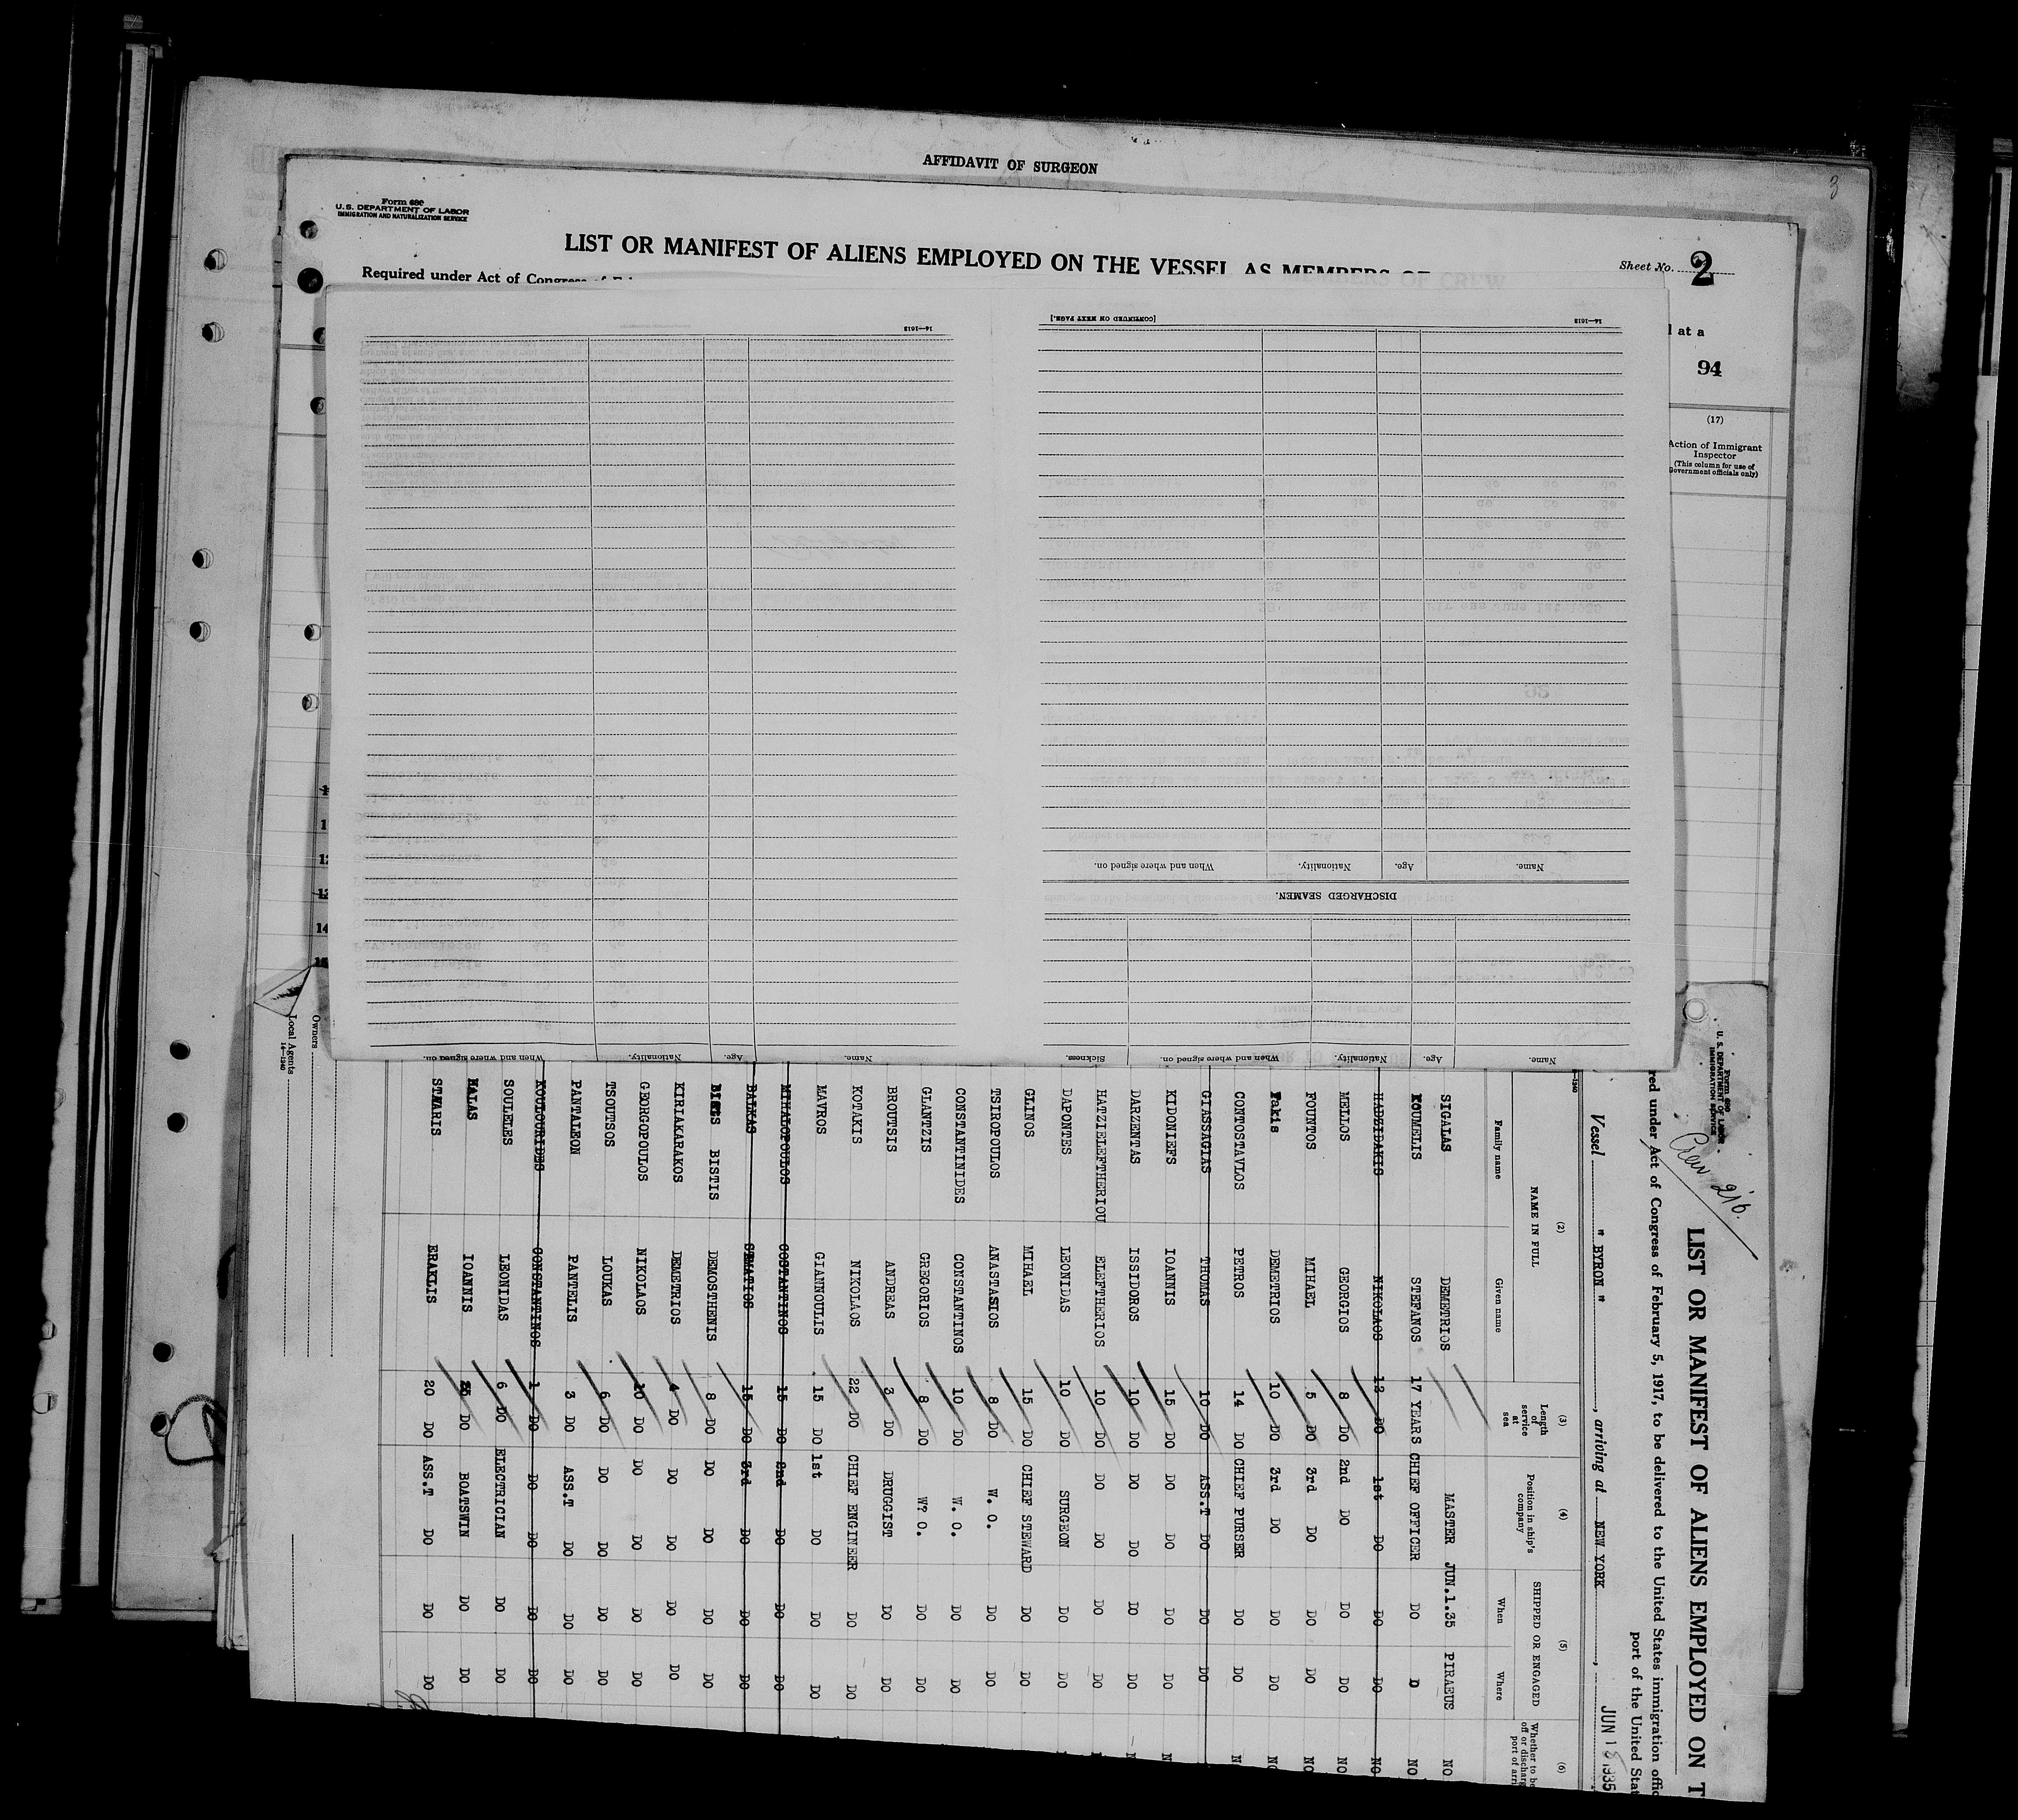 AFFIDAVIT OF SURGEON
3
Form 680
U.S. DEPARTMENT OF LABOR
IMMIGRATION AND NATURALIZATION SERVICE
LIST OR MANIFEST OF ALIENS EMPLOYED ON THE VESSEL AS MEMBERS OF CREW
Sheet No. 2
Required under Act of Congress of
l at a
94
(17)
Action of Immigrant
Inspector
(This column for use of
Government officials only)
12
13
14
15
14—1613
When and where signed on. Nationality. Age. Name.
[CONTINUED ON NEXT PAGE.]
14—1613
When and where signed on. Nationality. Age. Name.
DISCHARGED SEAMEN.
Sickness. When and where signed on. Nationality. Age. Name.
Form 680
U. S. DEPARTMENT OF LABOR
IMMIGRATION
Crew 216.
LIST OR MANIFEST OF ALIENS EMPLOYED ON T
red under Act of Congress of February 5, 1917, to be delivered to the United States immigration offic
port of the United Stat
Vessel " BYRON ", arriving at NEW YORK, JUN 18 1935
(2) (3) (4) (5) (6)
NAME IN FULL
Family name Given name
Length of service at sea
Position in ship's company
SHIPPED OR ENGAGED
When Where
Whether to be
off or discharg
port of arri
SIGALAS DEMETRIOS MASTER JUN.1.35 PIRAEUS NO
KOUMELIS STEFANOS 17 YEARS CHIEF OFFICER DO D NO
HADZIDAKIS NIKOLAOS 12 DO 1st DO DO DO NO
MELLOS GEORGIOS 8 DO 2nd DO DO DO NO
FOUNTOS MIHAEL 5 DO 3rd DO DO DO NO
Fakis DEMETRIOS 10 DO 3rd DO DO DO NO
CONTOSTAVLOS PETROS 14 DO CHIEF PURSER DO DO N
GIASSAGIAS THOMAS 10 DO ASS.T DO DO DO
KIDONIEFS IOANNIS 15 DO DO DO DO DO N
DARZENTAS ISSIDOROS 10 DO DO DO DO DO N
HATZIELEFTHERIOU ELEFTHERIOS 10 DO DO DO DO DO
DAPONTES LEONIDAS 10 DO SURGEON DO DO
GLINOS MIHAEL 15 DO CHIEF STEWARD DO DO
TSIROPOULOS ANASTASIOS 8 DO W. O. DO DO
CONSTANTINIDES CONSTANTINOS 10 DO W. O. DO DO
GLANTZIS GREGORIOS 8 DO W? O. DO DO
BROUTSIS ANDREAS 3 DO DRUGGIST DO DO
KOTAKIS NIKOLAOS 22 DO CHIEF ENGINEER DO DO
MAVROS GIANNOULIS 15 DO 1st DO DO DO
MIHALOPOULOS COSTANTINOS 15 DO 2nd DO DO DO
DALKAS STMATIOS 15 DO 3rd DO DO DO
BISTIS DEMOSTHENIS 8 DO DO DO DO DO
KIRIAKARAKOS DEMETRIOS 4 DO DO DO DO DO
GEORGOPOULOS NIKOLAOS 10 DO DO DO DO DO
TSOUTSOS LOUKAS 6 DO DO DO DO DO
PANTALEON PANTELIS 3 DO ASS.T DO DO DO
KOULOURIDES CONSTANTINOS 1 DO DO DO DO DO
SOULELES LEONIDAS 6 DO ELECTRICIAN DO DO
HALAS IOANNIS DO BOATSWIN DO DO
ERAKLIS 20 DO ASS.T DO DO DO
Owners
Local Agents
14—1240